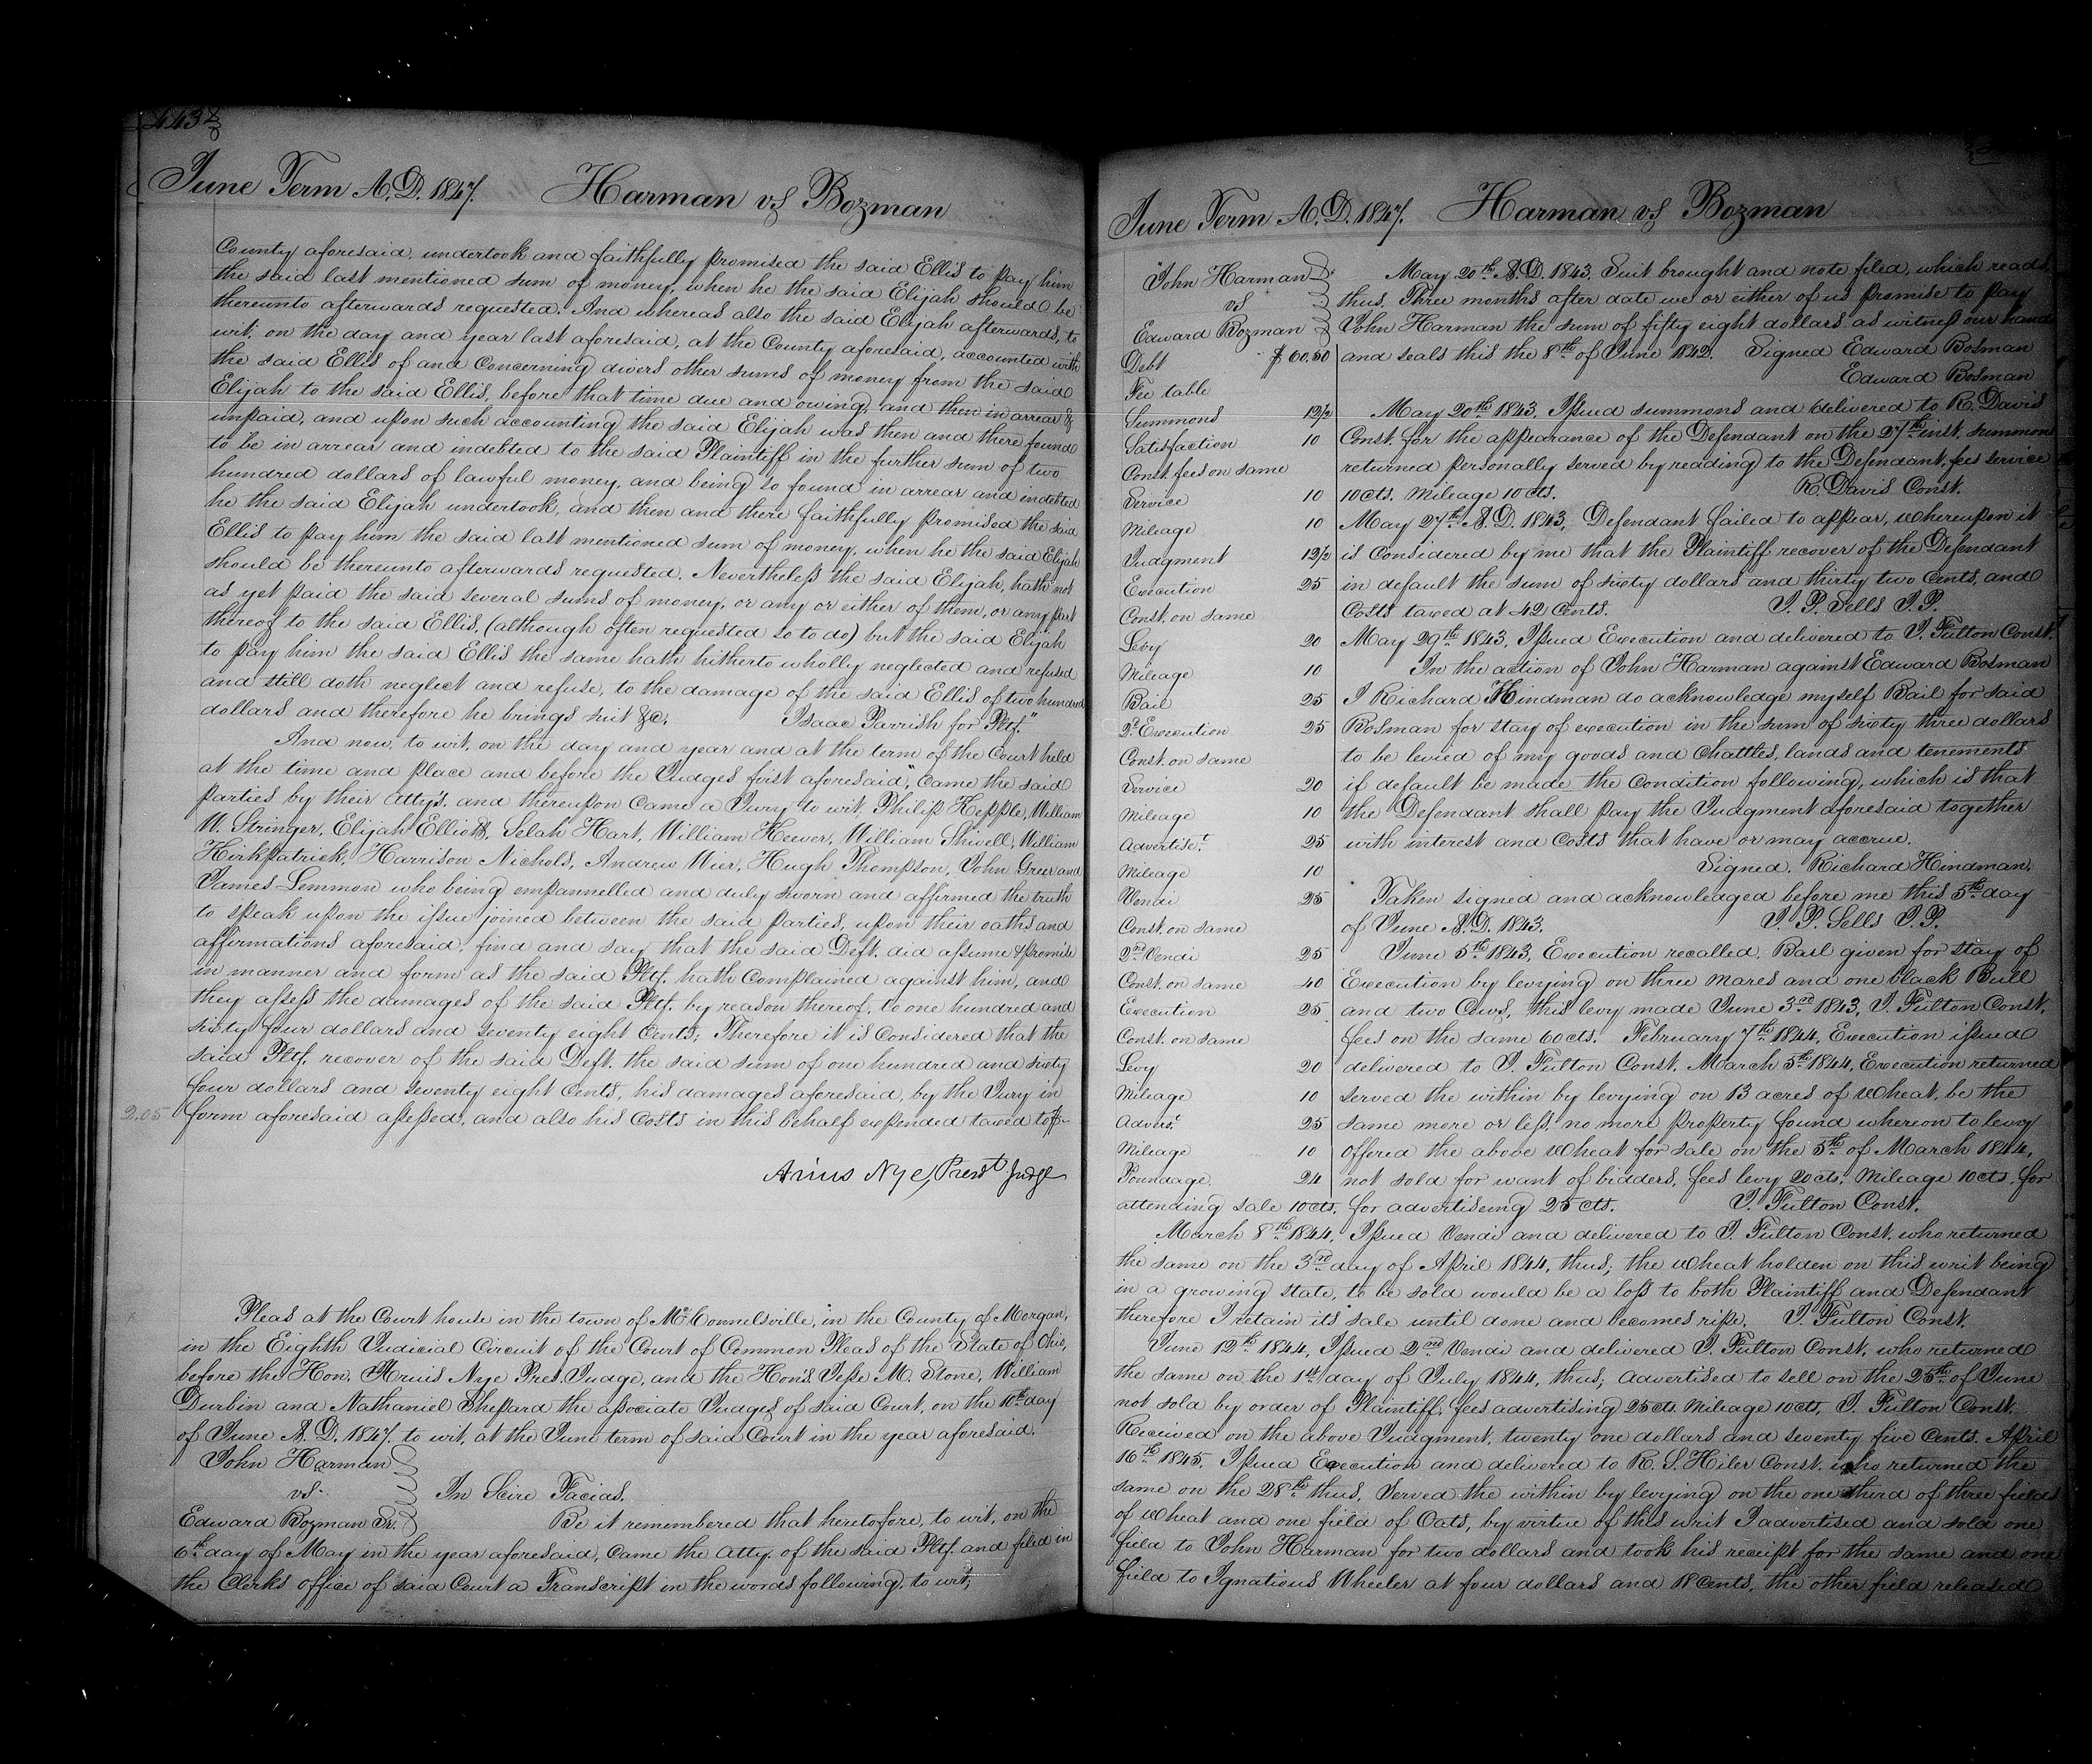 443
June Term A.D. 1847. Harman vs Bozman
County aforesaid, undertook and faithfully promised the said Ellis to pay him
the said last mentioned sum of money, when he the said Elijah should be
thereunto afterwards requested. And whereas also the said Elijah afterwards, to
wit; on the day and year last aforesaid, at the County aforesaid, accounted with
the said Ellis of and concerning divers other sums of money from the said
Elijah to the said Ellis, before that time due and owing, and then in arrear &
unpaid, and upon such accounting the said Elijah was then and there found
to be in arrear and indebted to the said Plaintiff in the further sum of two
hundred dollars of lawful money, and being so found in arrear and indebted
he the said Elijah undertook, and then and there faithfully promised the said
Ellis to pay him the said last mentioned sum of money, when he the said Elijah
should be thereunto afterwards requested. Nevertheless the said Elijah, hath not
as yet paid the said several sums of money, or any or either of them, or any part
thereof to the said Ellis, (although often requested so to do) but the said Elijah
to pay him the said Ellis the same hath hitherto wholly neglected and refused
and still doth neglect and refuse, to the damage of the said Ellis of two hundred
dollars and therefore he brings suit &c. Isaac Parrish for Pltf."
And now, to wit, on the day and year and at the term of the Court held
at the time and place and before the Judges first aforesaid, came the said
parties by their Atty's. and thereupon came a Jury to wit, Philip Hepple, William
W. Stringer, Elijah Elliott, Selah Hart, William Keever, William Shivell, William
Kirkpatrick, Harrison Nichols, Andrew Wier, Hugh Thompson, John Greer and
James Lemmon who being empannelled and duly sworn and affirmed the truth
to speak upon the issue joined between the said parties, upon their oaths and
affirmations aforesaid, find and say that the said Deft. did assume & promise
in manner and form as the said Pltf. hath complained against him, and
they assess the damages of the said Pltf. by reason thereof, to one hundred and
sixty four dollars and seventy eight cents; Therefore it is considered that the
said Pltf. recover of the said Deft. the said sum of one hundred and sixty
four dollars and seventy eight cents, his damages aforesaid, by the Jury in
2.05 form aforesaid assessed, and also his costs in this behalf expended taxed to $-
Arius Nye, Prest Judge
Pleas at the Court house in the town of McConnelsville, in the County of Morgan,
in the Eighth Judicial Circuit of the Court of Common Pleas of the State of Ohio,
before the Hon. Arius Nye Pres. Judge, and the Hons Jesse M. Stone, William
Durbin and Nathaniel Shepard the associate Judges of said Court, on the 10th day
of June A.D. 1847. to wit, at the June term of said Court in the year aforesaid.
John Harman
vs. In Scire Facias.
Edward Bozman Sr. Be it remembered that heretofore, to wit, on the
6th day of May in the year aforesaid, came the Atty. of the said Pltf. and filed in
the Clerks office of said Court a Transcript in the words following, to wit;
June Term A.D. 1847. Harman vs Bozman
"John Harman May 20th A.D. 1843. Suit brought and note filed, which reads
vs thus, Three months after date we or either of us promise to pay
Edward Bozman John Harman the sum of fifty eight dollars as witness our hand
Debt $60,50 and seals this the 8th of June 1842. Signed Edward Bosman
Fee table Edward Bosman
Summons 12/2 May 20th 1843, Issued summons and delivered to R. Davis
Satisfaction 10 Const. for the appearance of the Defendant on the 27th inst. summon
Const. fees on same returned personally served by reading to the Defendant, fees service
Service 10 10cts. Mileage 10cts. R. Davis Const.
Mileage 10 May 27th A.D. 1843, Defendant failed to appear, whereupon it
Judgment 12/2 is considered by me that the Plaintiff recover of the Defendant
Execution 25 in default the sum of sixty dollars and thirty two cents, and
Const. on same Costs taxed at 42 cents. J. P. Sells J.P.
Levy 20 May 29th 1843, Issued Execution and delivered to J. Fulton Const.
Mileage 10 In the action of John Harman against Edward Bosman
Bail 25 I Richard Hindman do acknowledge myself Bail for said
2d Execution 25 Bosman for stay of execution in the sum of sixty three dollars
Const. on same to be levied of my goods and chattles, lands and tenements
Service 20 if default be made the condition following, which is that
Mileage 10 the Defendant shall pay the Judgment aforesaid together
Advertiset 25 with interest and costs that have or may accrue.
Mileage 10 Signed. Richard Hindman.
Vendi 25 Taken signed and acknowledged before me this 5th day
Const. on same of June A.D. 1843. J. P. Sells J.P.
2nd Vendi 25 June 5th 1843, Execution recalled, Basl given for stay of
Const. on same 40 Execution by levying on three mares and one black Bull
Execution 25 and two Cows, this levy made June 3rd 1843, J. Fulton Const.
Const. on same fees on the same 60cts. February 7th 1844, Execution issued
Levy 20 delivered to J. Fulton Const. March 5th 1844, Execution returned
Mileage 10 served the within by levying on 13 acres of Wheat, be the
Adverst 25 same more or less, no more property found whereon to levy
Mileage 10 offered the above Wheat for sale on the 5th of March 1844,
Poundage 24 not sold for want of bidders, fees levy 20cts. Mileage 10cts, for
attending sale 10cts. for advertiseing 25cts. J. Fulton Const.
March 8th 1844, Issued Vendi and delivered to J. Fulton Const. who returned
the same on the 3rd day of April 1844, thus; the wheat holden on this writ being
in a growing state, to be sold would be a loss to both Plaintiff and Defendant
therefore I retain its sale until done and becomes ripe. J. Fulton Const.
June 12th 1844, Issued 2nd Vendi and delivered J. Fulton Const. who returned
the same on the 1st day of July 1844, thus; advertised to sell on the 25th of June
not sold by order of Plaintiff, fees advertising 25cts. Mileage 10cts, J. Fulton Const.
Received on the above Judgment, twenty one dollars and seventy five cents. April
16th 1845. Issued Execution and delivered to R. S. Hiler Const. who returned the
same on the 28th thus, Served the within by levying on the one third of three fields
of wheat and one field of Oats, by virtue of this writ I advertised and sold one
field to John Harman for two dollars and took his receipt for the same and one
field to Ignatious Wheeler at four dollars and 18 cents, the other field released